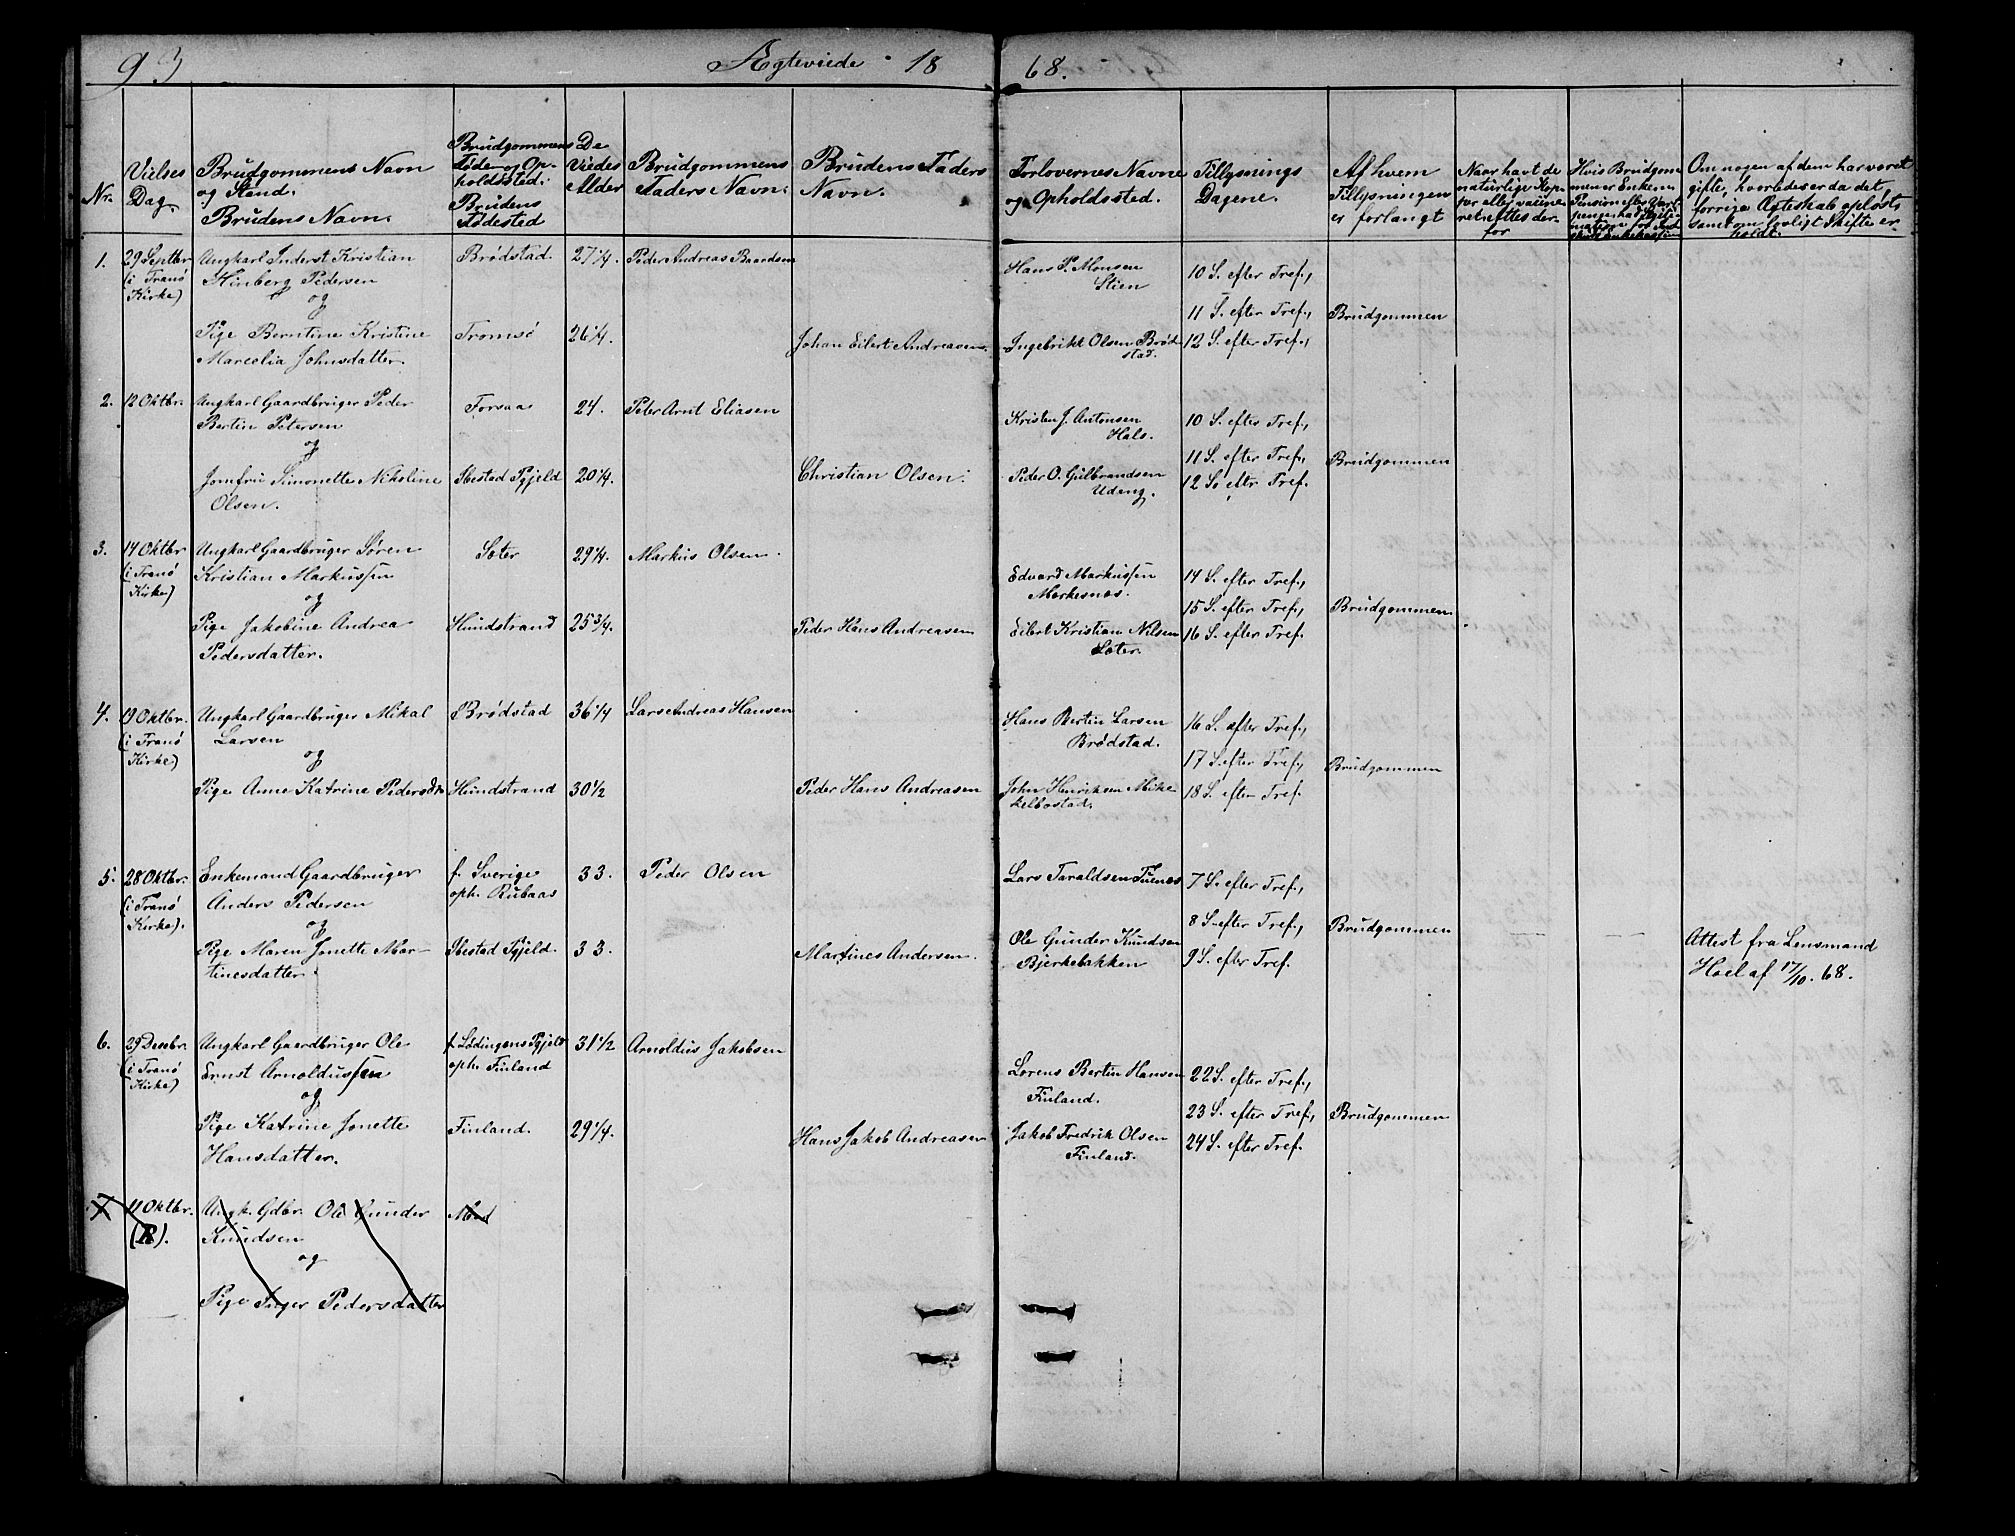 93 Ægteviede 18 68.
Nr.
Vielses Dag.
Brudgommens Navn og Stand. Brudens Navn.
Brudgommens Føde og Opholdssted. Brudens Fødested
De Viedes Alder
Brudgommens Faders Navn.
Brudens Faders Navn.
Forlovernes Navne og Opholdssted.
Tillysnings Dagene.
Af hvem Tillysningen er forlangt
Naar havt de naturlige Kopper eller vaccineret
Hvis Brudgommen er Enkem
Om nogen af dem har været gift, hvorledes er da det forrige Ægteskab opløst, samt om lovligt Skifte er holdt.
1. 29 Septbr (i Tranø Kirke)
Ungkarl Inderst Kristian Pedersen
og
Pige Berntine Kristine Marcelia Johnsdatter.
Brødstad. 27 1/4. Peder Andreas Baardsen
Tromsø 26 1/4. Johan Eilert Andreasen.
Hans P. Monsen Stien
Ingebrikt Olsen Brødstad.
10 S. efter Tref.,
11 S. efter Tref., Brudgommen
12 S. efter Tref.,
2. 12 Oktbr.
Ungkarl Gaardbruger Peder Bertin Petersen
og
Jomfru Simonette Nikoline Olsen.
Forsaa 24. Peter Arnt Eliasen
Ibestad Pgjeld 20 1/4. Christian Olsen.
Kristen J. Antonsen Hals.
Peder O. Gulbrandsen Udeng.
10 S. efter Tref.,
11 S. efter Tref., Brudgommen
12 S. eftr Tref.
3. 14 Oktbr (i Tranø Kirke)
Ungkarl Gaardbruger Søren Kristian Markussen
og
Pige Jakobine Andrea Pedersdatter.
Sæter 29 1/4. Markus Olsen.
Hundstrand 25 3/4. Peder Hans Andreasen
Edvard Markussen Markesnæs.
Eilert Kristian Nilsen Sæter.
14 S. efter Tref.,
15 S. efter Tref., Brudgommen
16 S. efter Tref.
4. 19 Oktbr. (i Tranø Kirke)
Ungkarl Gaardbruger Mikal Larsen
og
Pige Anne Katrine Pedersdtr
Brødstad 36 1/4 Lars Andreas Hansen
Hundstrand 30 1/2 Peder Hans Andreasen
Hans Bertin Larsen Brødstad.
John Henriksen Mikkelbostad.
16 S. efter Tref.,
17 S. efter Tref., Brudgommen
18 S. efter Tref.
5. 28 Oktbr. (i Tranø Kirke).
Enkemand Gaardbruger Anders Pedersen
og
Pige Maren Jonette Martinesdatter
f. Sverige oph. Rubaas 33. Peder Olsen
Ibestad Pgjeld. 33. Martines Andersen.
Lars Taraldsen
Ole Gunder Knudsen Bjerkebakken
7 S. efter Tref.,
8 S. efter Tref., Brudgommen
9 S. efter Tref.
Attest fra Lensmand Hoel af 17/10. 68.
6. 29 Desbr. (i Tranø Kirke)
Ungkarl Gaardbruger Ole Ernst Arnoldussen
og
Pige Katrine Jonette Hansdatter.
f. Lødingens Pgjeld oph. Finland 31 1/2 Arnoldus Jakobsen
Finland. 29 1/4. Hans Jakob Andreasen
Lorens Bertin Hansen Finland.
Jakob Fredrik Olsen Finland.
22 S. efter Tref.,
23 S. efter Tref., Brudgommen
24 S. efter Tref.
7 11 Oktbr. (R).
Ungk. Gdbr. Ole Gunder Knudsen
og
Pige Inger Pedersdatter